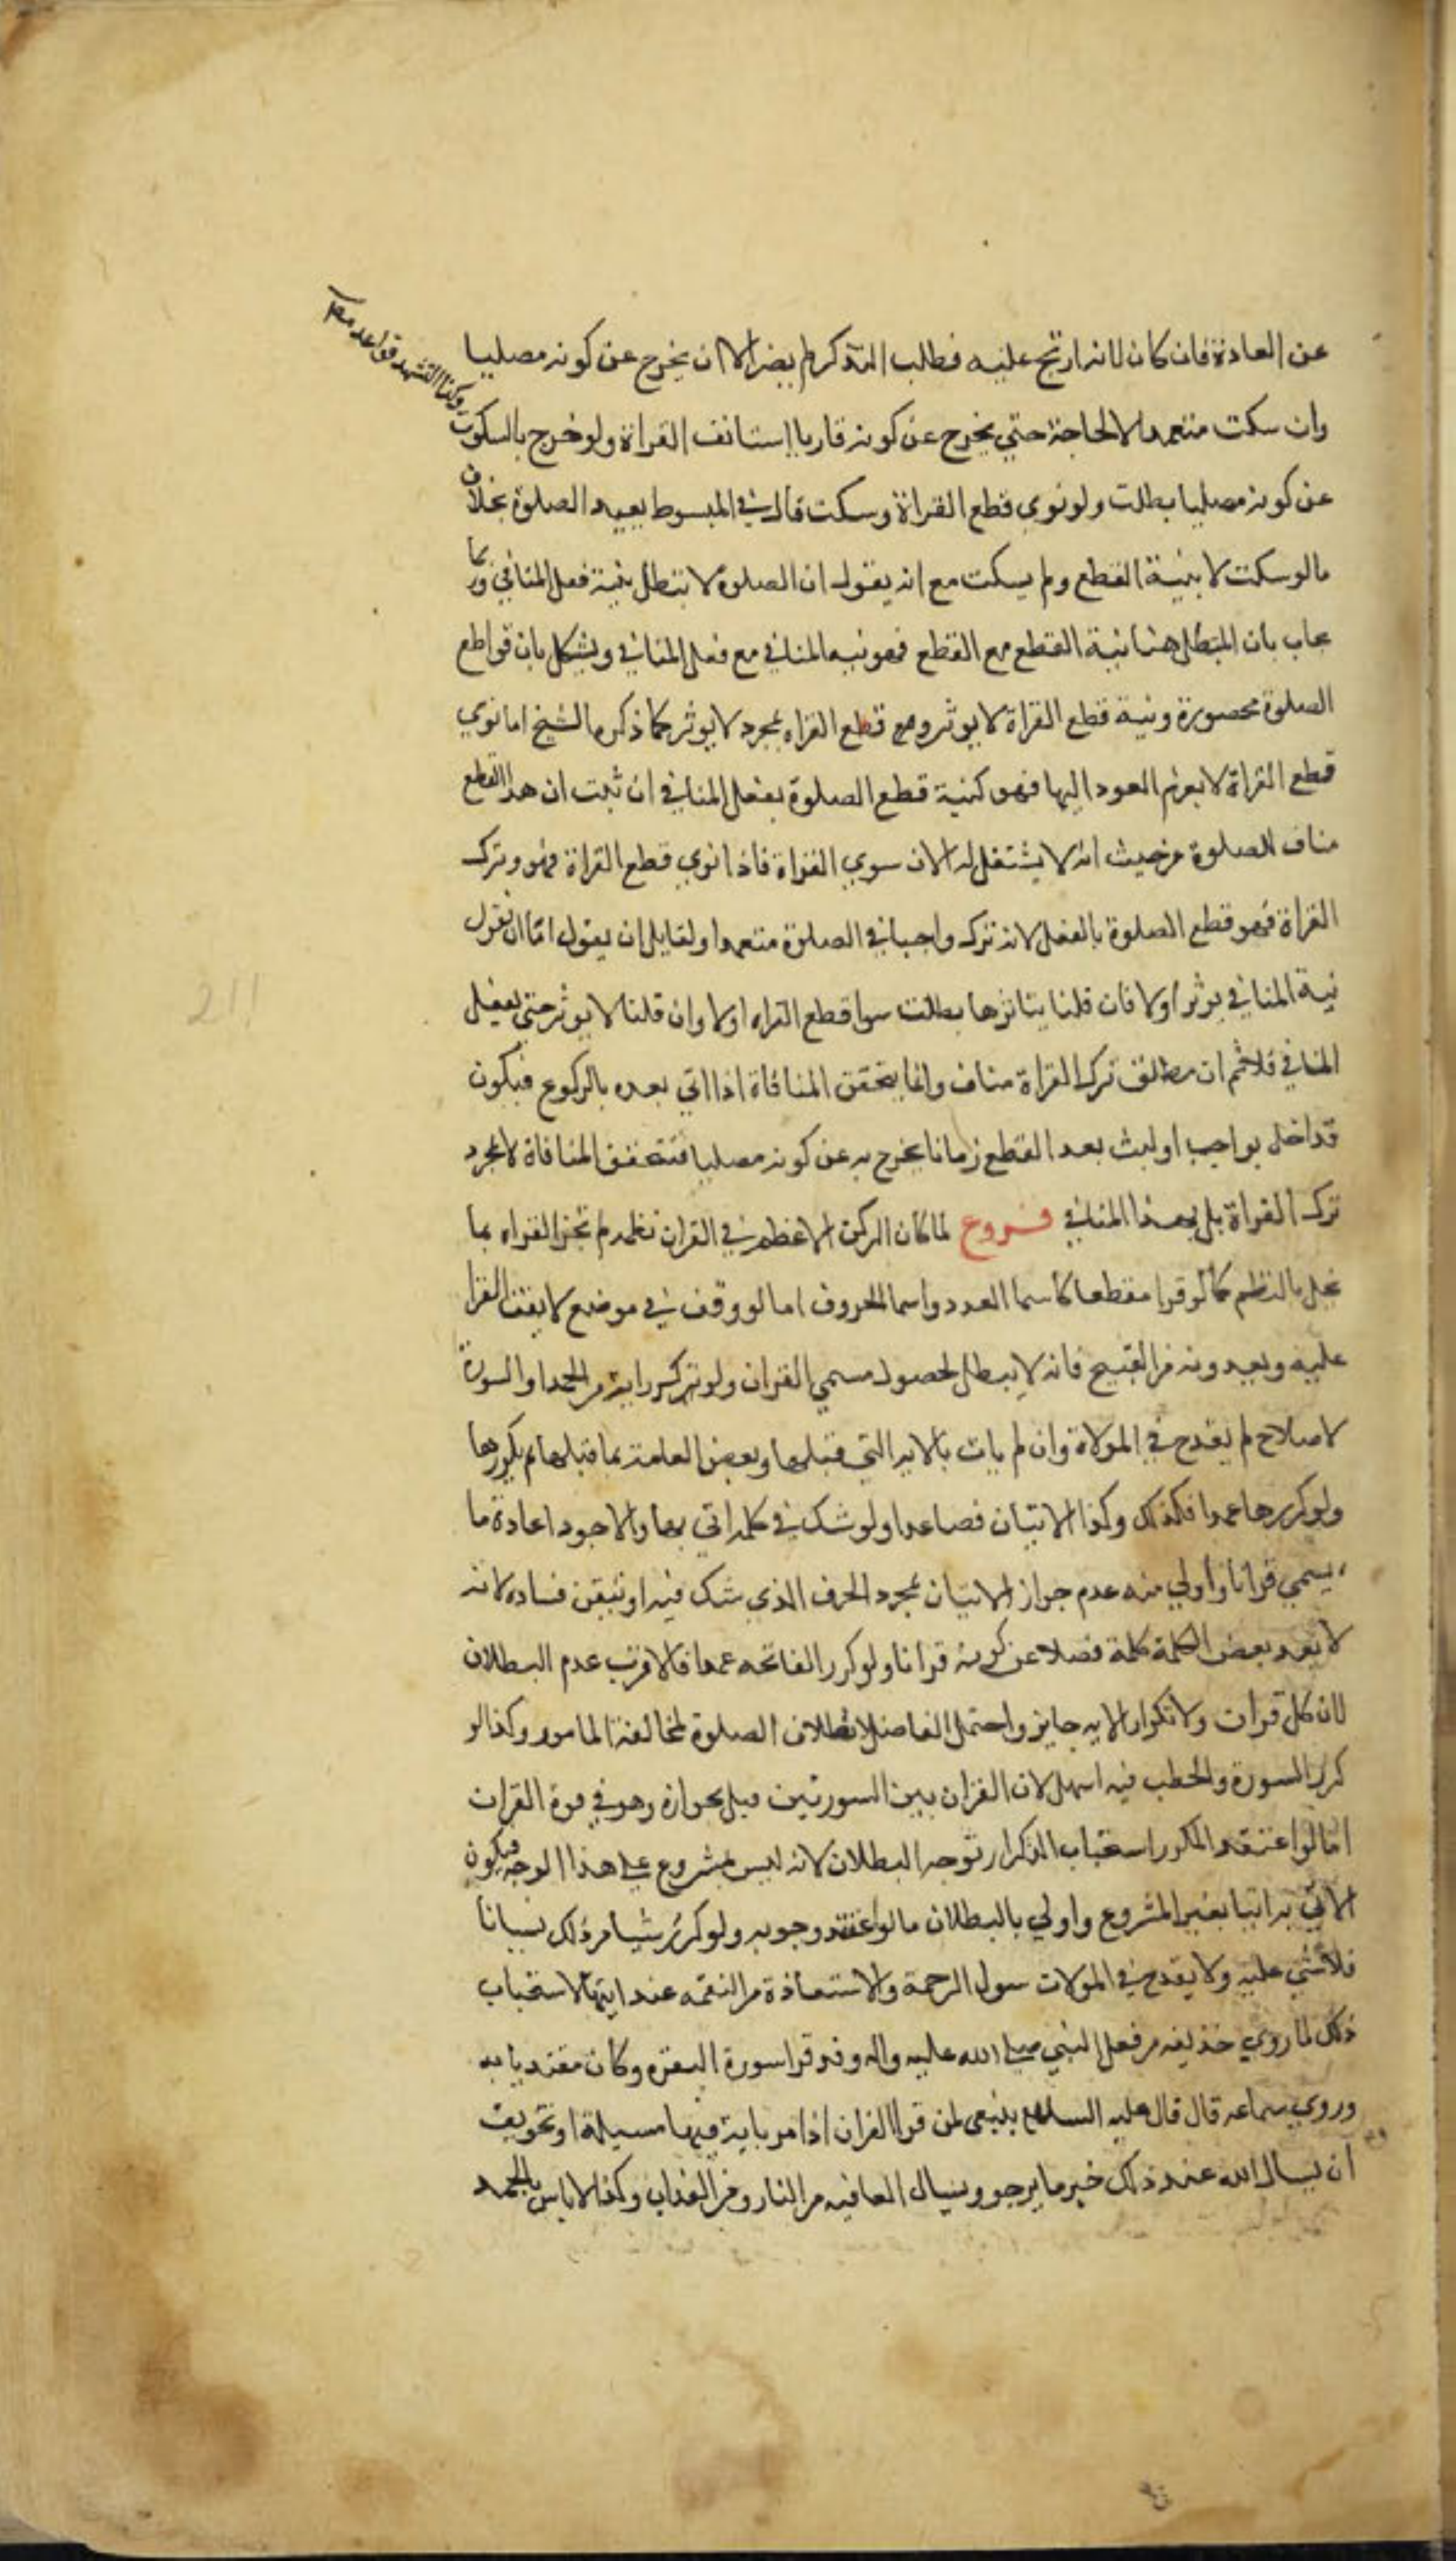 عن العادة فان كان لانه ارتج عليه فطلب التذكر لم يضر الا ان يخرج عن كونه مصليا
وكذا التشهد قواعد
وان سكت متعمدا لا لحاجة حتي يخرج عن كونه قاريا استانف القراة ولو خرج بالسكوت
عن كونه مصليا بطلت ولو نوي قطع القراة وسكت قال في المبسوط يعيد الصلوة بخلاف
مالو سكت لا بنية القطع ولم يسكت مع انه يقول ان الصلوة لا تبطل بنية فعل المنافي وربما
يجاب بان المبطل هنا نية القطع مع القطع فهو نية المنافي مع فعل المنافي ويشكل بان قواطع
الصلوة محصورة ونية قطع القراة لا يوثر ومع قطع القراه بمجرد لا يوثر كما ذكره الشيخ اما نوي
قطع القراة لا بعزم العود اليها فهو كنية قطع الصلوة بفعل المنافي ان ثبت ان هذا القطع
مناف للصلوة من حيث انه لا يشتغل له الان سوي القراة فاذا نوي قطع القراة فهو وترك
القراة فهو قطع الصلوة بالفعل لانه ترك واجبا في الصلوة متعمدا ولقايل ان يقول اما ان نقول
نية المنافي يوثر اولا فان قلنا بتاثرها بطلت سوا قطع القراه اولا وان قلنا لا يوثر حتي يفعل
المنافي فلا ثم ان مطلق ترك القراة مناف وانما يتحقق المنافاة اذا اتي بعده بالركوع فيكون
قد اخل بواجب او لبث بعد القطع زمانا يخرج به عن كونه مصليا فتتحقق المنافاة لا بمجرد
ترك القراة بل بهذا المنافي فروع لما كان الركن الاعظم في القران نظمه لم تجز القراه بما
يخل بالنظم كما لو قرا مقطعا كاسما العدد واسما الحروف اما لو وقف في موضع لا يقف القرا
عليه ويعدونه من القبيح فانه لا يبطل لحصول مسمي القران ولو تكرر اية من الحمد او السورة
لاصلاح لم يقدح في الموالاة وان لم يات بالايه التي قبلها وبعض العامة بما قبلها ثم يكررها
ولو كررها عمدا فكذلك وكذا الايتان فصاعدا ولو شك في كلمه اتي بها والاجود اعادة ما
يسمي قرانا واولي منه عدم جواز الاتيان بمجرد الحرف الذي شك فيه او تيقن فساده لانه
لا يعد بعض الكلمة كلمة فضلا عن كونه قرانا ولو كرر الفاتحه عمدا فالاقرب عدم البطلان
لان كل قران ولا تكرار الايه جايز واحتمل الفاضل ابطلان الصلوة لمخالفة المامور وكذا لو
كرر السورة والخطب فيه اسهل لان القران بين السورتين قيل بجوازه وهو في قوة القران
اما لو اعتقد المكرر استحباب التكرار توجه البطلان لانه ليس بمشروع علي هذا الوجه فيكون
الاتي به اتيا بغير المشروع واولي بالبطلان مالو اعتقد وجوبه ولو كرر شيا من ذلك نسيانا
فلا شي عليه ولا يقدح في الموالات سول الرحمة والاستعاذة من النقمه عند ايتها لاستحباب
ذلك لما روي حذيفه من فعل النبي صلي الله عليه واله وقد قرا سورة البقره وكان مقتديا به
وروي سماعه قال قال عليه السلام ينبغي لمن قرا القران اذا مر باية فيها مسيلة او تخويف
ان يسال الله عند ذلك خير ما يرجو ويسال العافيه من النار ومن العذاب وكذا لاباس بالحمد
211